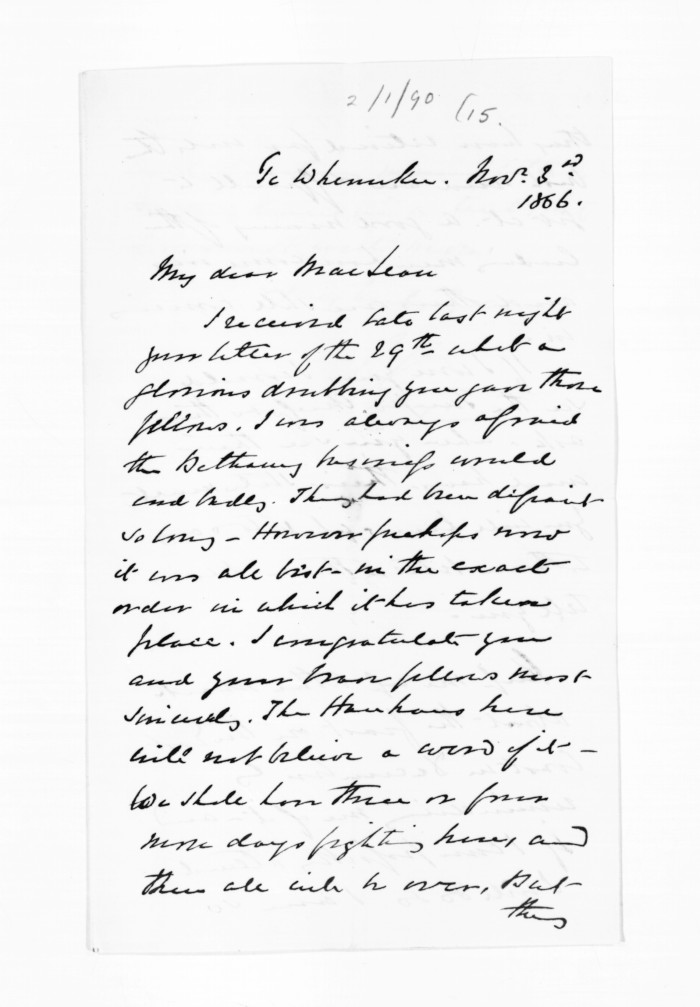 2/1/90 (15.
Te Wheneuku. Novr. 3rd
1866.
My dear MacLean
I received late last night
your letter of the 29th what a
glorious drubbing you gave those
fellows. I was always afraid
the Pethaway business would
end badly. They had been
so long - However perhaps now
it was all best - in the exact
order in which it has taken
place. I congratulate you
and your brave fellows most
sincerely. The Hauhaus here
will not believe a word of it -
We shall have three or four
more days fighting here, and
then all will be over, But
they